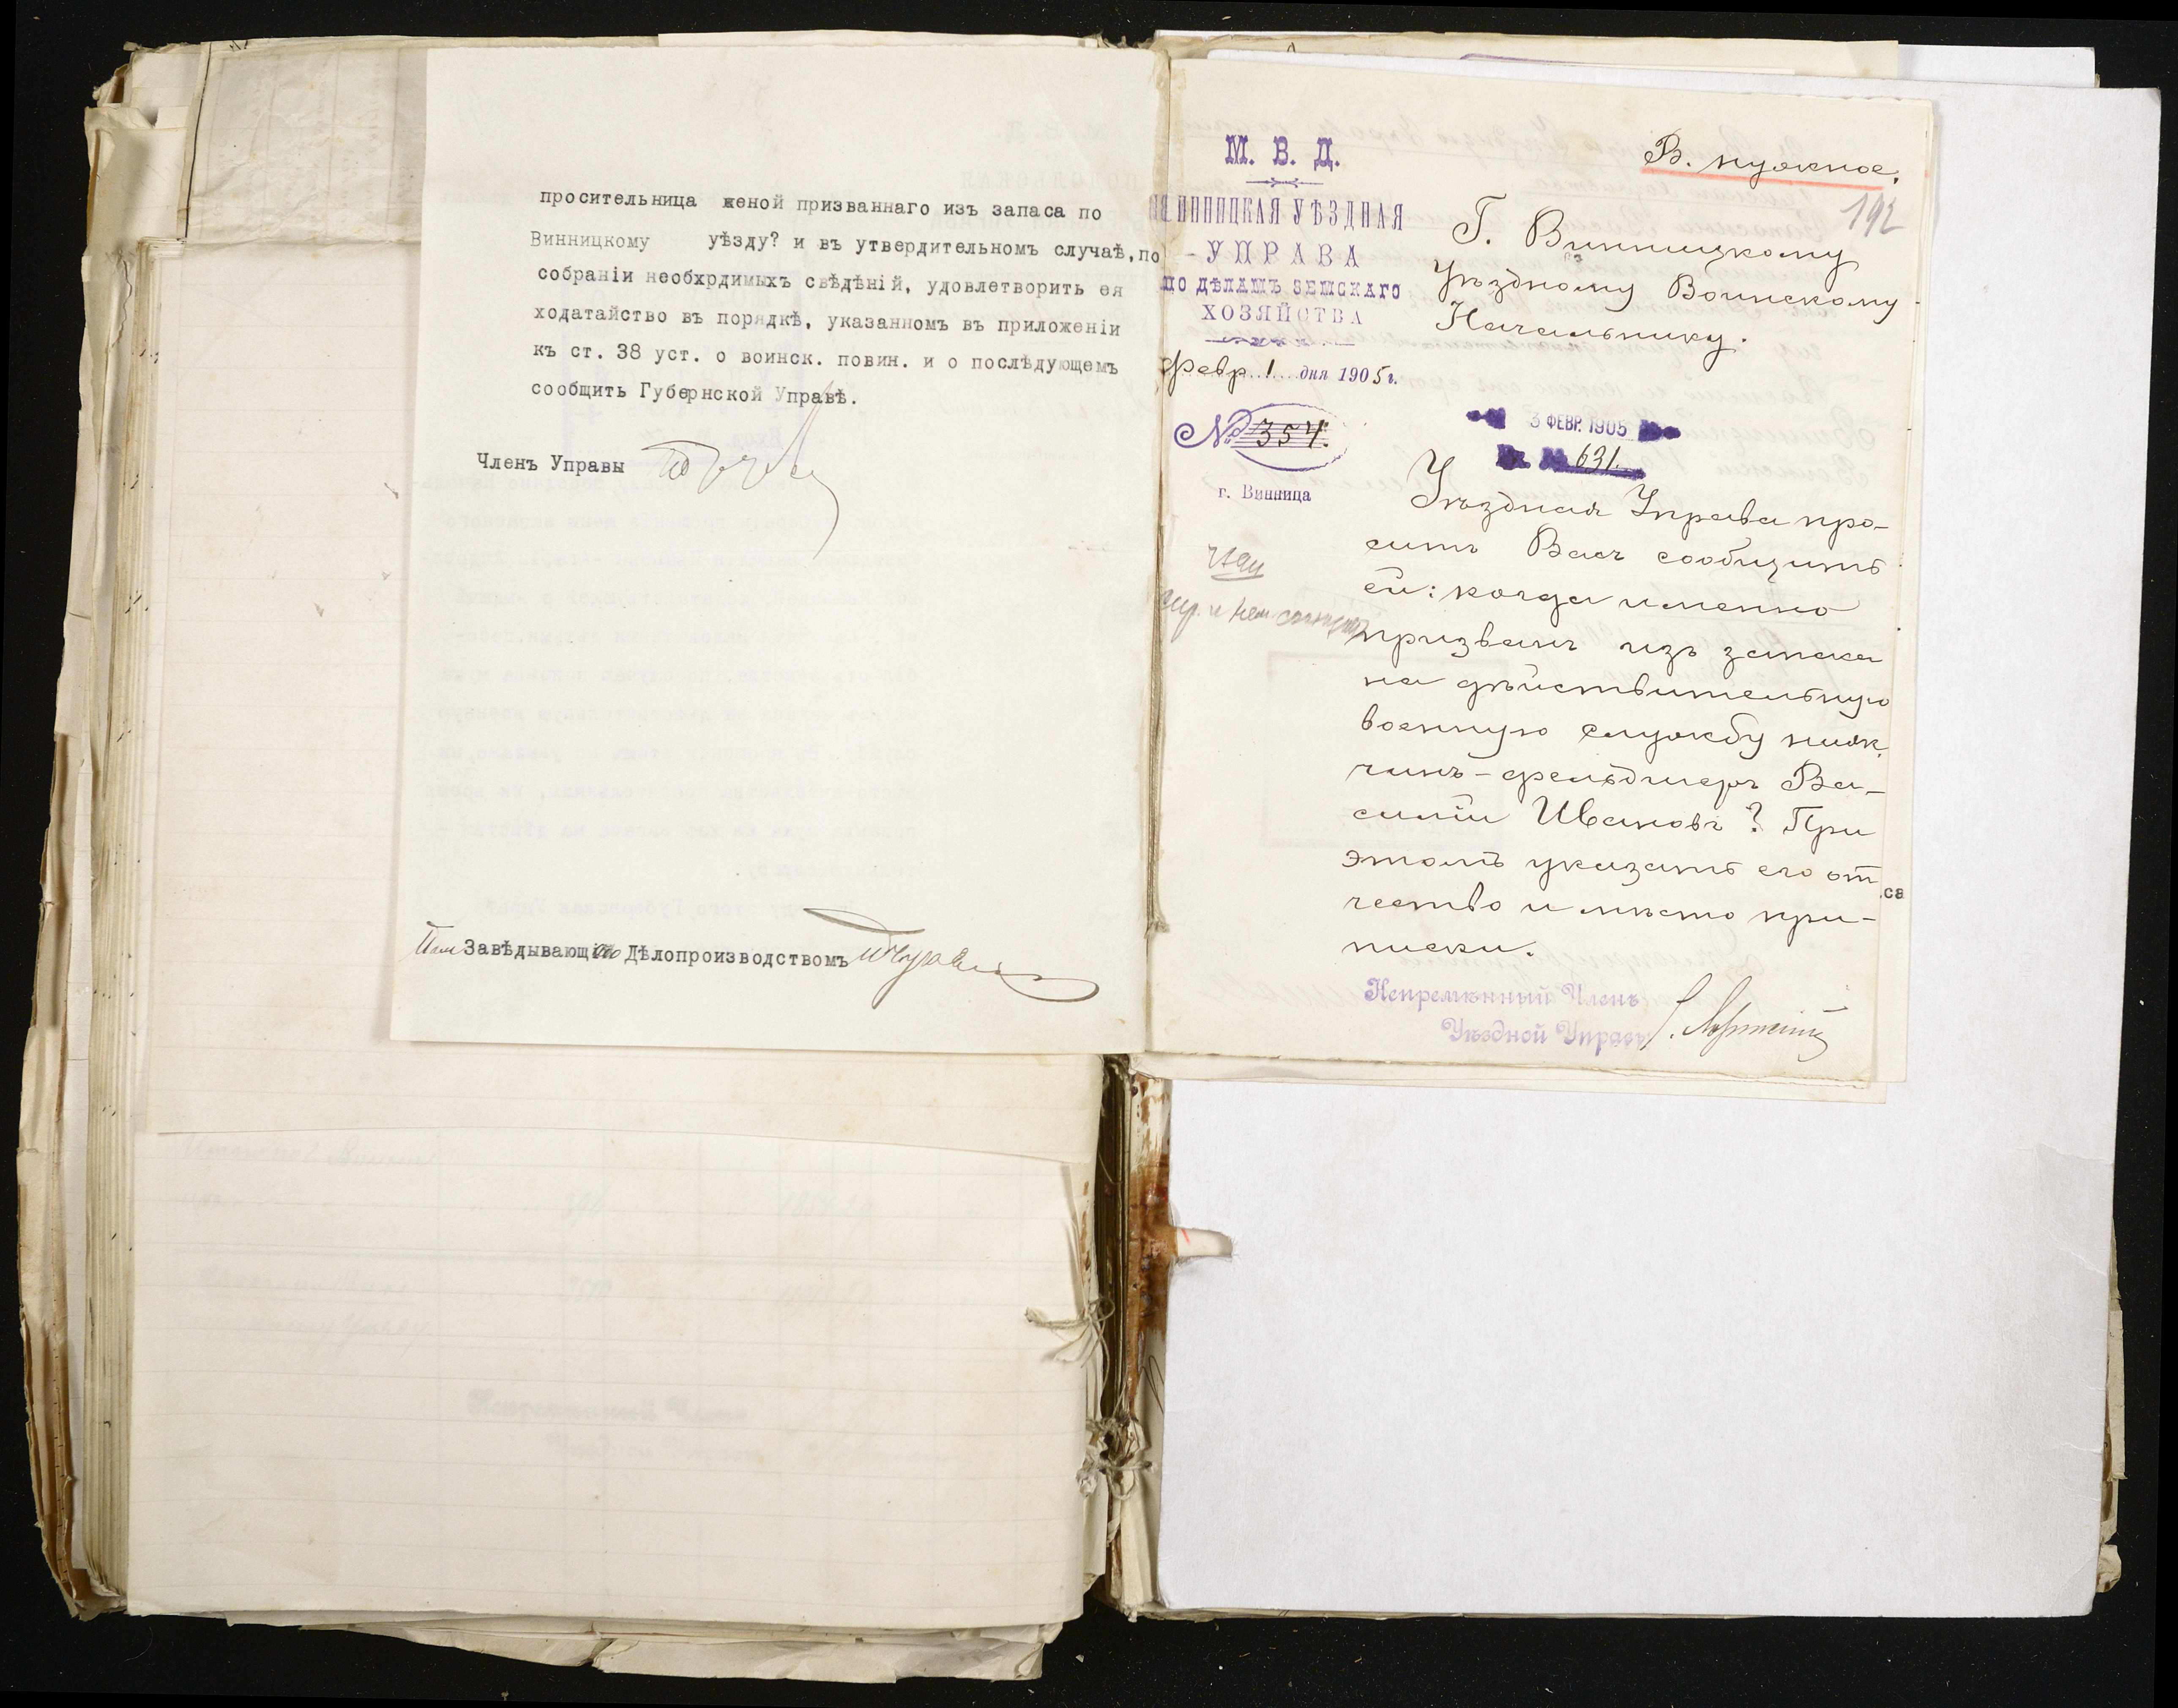 просительница женой призваннаго изъ запаса по
Винницкому уѣзду? и въ утвердительномъ случаѣ, по
собраніи необхрдимыхъ свѣдѣній, удовлетворить ея
ходатайство въ порядкѣ, указанномъ въ приложеніи
къ ст. 38 уст. о воинск. повин. и о послѣдующемъ
сообщить Губернской Управѣ.
Членъ Управы
Завѣдывающій Дѣлопроизводствомъ
В. нужное.
192
М. В. Д.
ВИННИЦКАЯ УѢЗДНАЯ
- УПРАВА
ПО ДѢЛАМЪ ЗЕМСКАГО
ХОЗЯЙСТВА
Февр. 1 дня 1905 г.
№ 354.
г. Винница
Г. Винницкому
Уѣздному Воинскому
Начальнику.
3 ФЕВР. 1905
631.
Уѣздная Управа про-
ситъ Васъ сообщить
ей: когда именно
призванъ изъ запаса
на дѣйствительную
военную службу нижн.
чинъ-фельдшеръ Ва-
силій Ивановъ? При
этомъ указать его от
чество и мѣсто при-
писки.
са
Непремѣнный Членъ
Уѣздной Управы